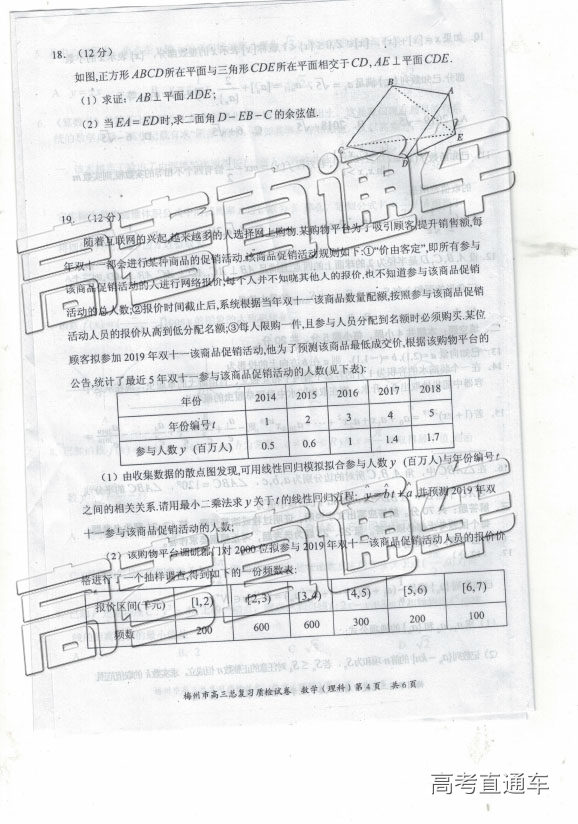 18. （12分）
如图,正方形ABCD所在平面与三角形CDE所在平面相交于CD, AE⊥平面CDE.
（1）求证：AB⊥平面ADE；
（2）当EA=ED时,求二面角D－EB－C的余弦值.
B
A
E
C
D
19. （12分）
随着互联网的兴起,越来越多的人选择网上购物.某购物平台为了吸引顾客,提升销售额,每
年双十一都会进行某种商品的促销活动.该商品促销活动规则如下:①"价由客定",即所有参与
该商品促销活动的人进行网络报价,每个人并不知晓其他人的报价,也不知道参与该商品促销
活动的总人数;②报价时间截止后,系统根据当年双十一该商品数量配额,按照参与该商品促销
活动人员的报价从高到低分配名额;③每人限购一件,且参与人员分配到名额时必须购买.某位
顾客拟参加2019年双十一该商品促销活动,他为了预测该商品最低成交价,根据该购物平台的
公告,统计了最近5年双十一参与该商品促销活动的人数(见下表):
年份 2014 2015 2016 2017 2018
年份编号t 1 2 3 4 5
参与人数y（百万人） 0.5 0.6 1 1.4 1.7
（1）由收集数据的散点图发现,可用线性回归模拟拟合参与人数y（百万人）与年份编号t
之间的相关关系.请用最小二乘法求y关于t的线性回归方程：ŷ=b̂t+â,并预测2019年双
十一参与该商品促销活动的人数;
（2）该购物平台调研部门对2000位拟参与2019年双十一该商品促销活动人员的报价价
格进行了一个抽样调查,得到如下的一份频数表:
报价区间(千元) [1,2) [2,3) [3,4) [4,5) [5,6) [6,7)
频数 200 600 600 300 200 100
梅州市高三总复习质检试卷 数学(理科)第4页 共6页
高考直通车
高考直通车
高考直通车